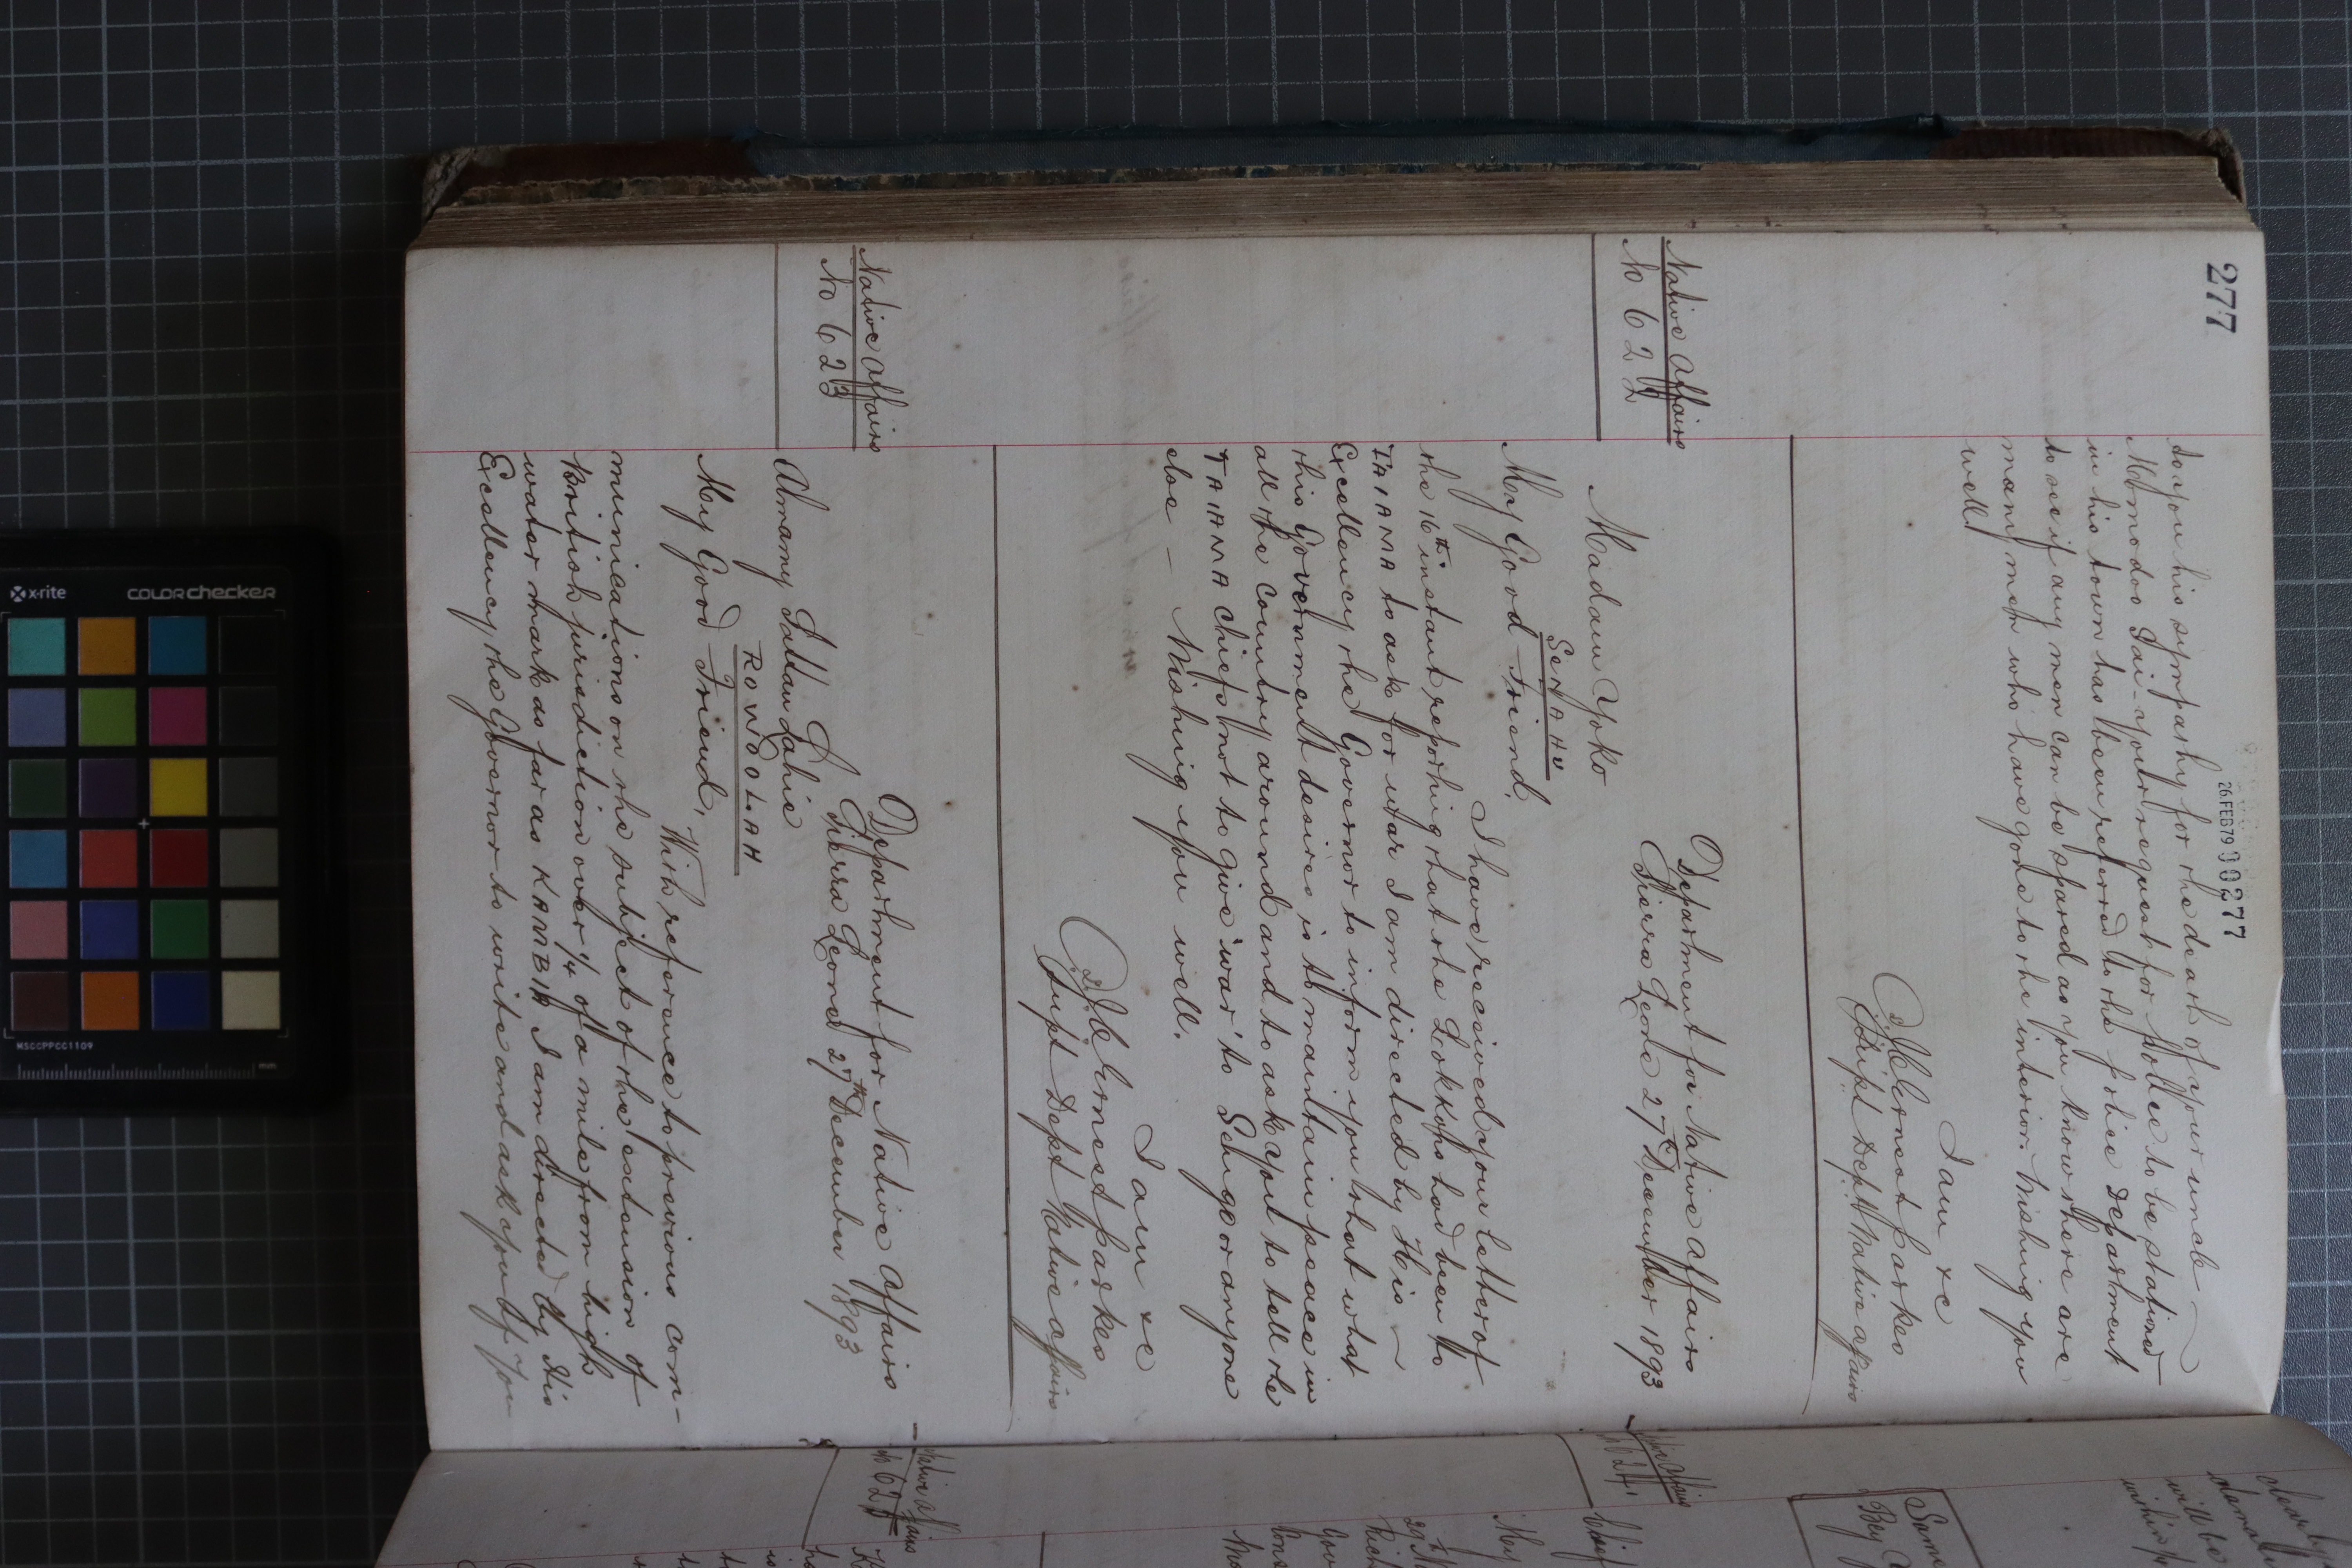 277
26 FEB 79 00277
to you his sympathy for the death of your uncle —
Momodoo Fai - your request for Police to be stationed
in his town has been referred to the police Department
to see if any men can be spared as you know there are
many men who have gone to the interior. Wishing you
well.
I am &c
J C Ernest Parkes
Supt Dept Native affairs
Native Affairs
No 622
Department for Native Affairs
Sierra Leone 27th December 1893
Madam Yoko
SENAHU
My Good Friend,
I have received your letter of
the 16th instant reporting that the Lokkoho had been to
TAIAMA to ask for war I am directed by His —
Excellency the Governor to inform you that what
this Government desires is to maintain peace in
all the country around and to ask you to tell the
TAIAMA chiefs not to give 'war' to Sehu go or anyone
else — Wishing you well.
I am &c
J C Ernest Parkes
Supt Dept Native Affairs
Native Affairs
No 623
Department for Native Affairs
Sierra Leone 27th December 1893
Almamy Sattan Lahie
ROWOLAH
My Good Friend,
With reference to previous com-
munications on the subject of the extension of
British jurisdiction over 1/4 of a mile from high
water mark as far as KAMBIA I am directed by His
Excellency the Governor to write and ask you if you
Native Affairs
No 625
Native Affairs
624
Chief
My
Gov
clear by
will be
wishing
Bey